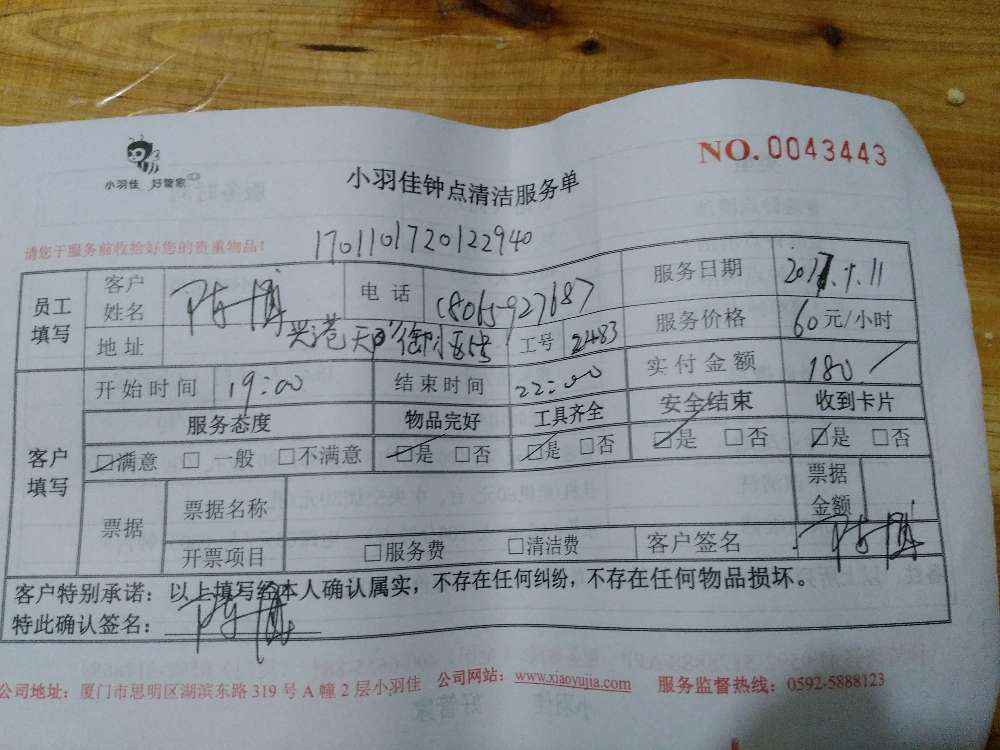 小羽佳 好管家
小羽佳钟点清洁服务单
NO. 0043443
请您于服务前收拾好您的贵重物品!
1701101720122940
员工填写 客户姓名 陈博 电话 18065927687 服务日期 2017.1.11
地址 兴港 工号 2483 服务价格 60元/小时
客户填写 开始时间 19:00 结束时间 22:00 实付金额 180
服务态度 物品完好 工具齐全 安全结束 收到卡片
☑满意 □一般 □不满意 ☑是 □否 ☑是 □否 ☑是 □否 ☑是 □否
票据 票据名称 票据金额
开票项目 □服务费 □清洁费 客户签名 陈博
客户特别承诺:以上填写经本人确认属实,不存在任何纠纷,不存在任何物品损坏。
特此确认签名:陈博
公司地址:厦门市思明区湖滨东路 319 号 A 幢 2 层小羽佳 公司网站:www.xiaoyujia.com 服务监督热线:0592-5888123